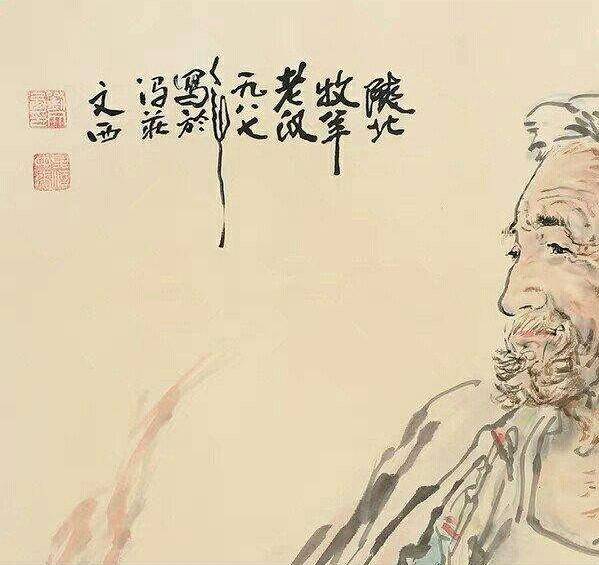 陕北
牧羊
老汉
一九八七
年
寫於
冯莊
文西